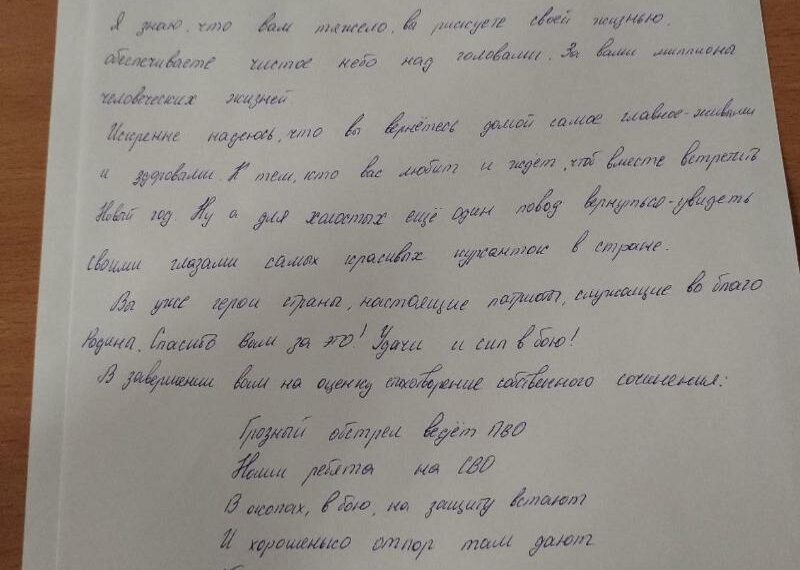 Я знаю, что вам тяжело, вы рискуете своей жизнью,
обеспечиваете чистое небо над головами. За вами миллионы
человеческих жизней
Искренне надеюсь, что вы вернётесь домой самое главное-живыми
и здоровыми. К тем, кто вас любит и ждёт, чтоб вместе встретить
Новый год. Ну а для холостых ещё один повод вернуться-увидеть
своими глазами самых красивых курсанток в стране.
Вы уже герои страны, настоящие патриоты, служащие во благо
Родины. Спасибо вам за это! Удачи и сил в бою!
В завершении вам на оценку стихотворение собственного сочинения:
Грозный обстрел ведёт ПВО
Наши ребята на СВО
В окопах, в бою, на защиту встают
И хорошенько отпор там дают